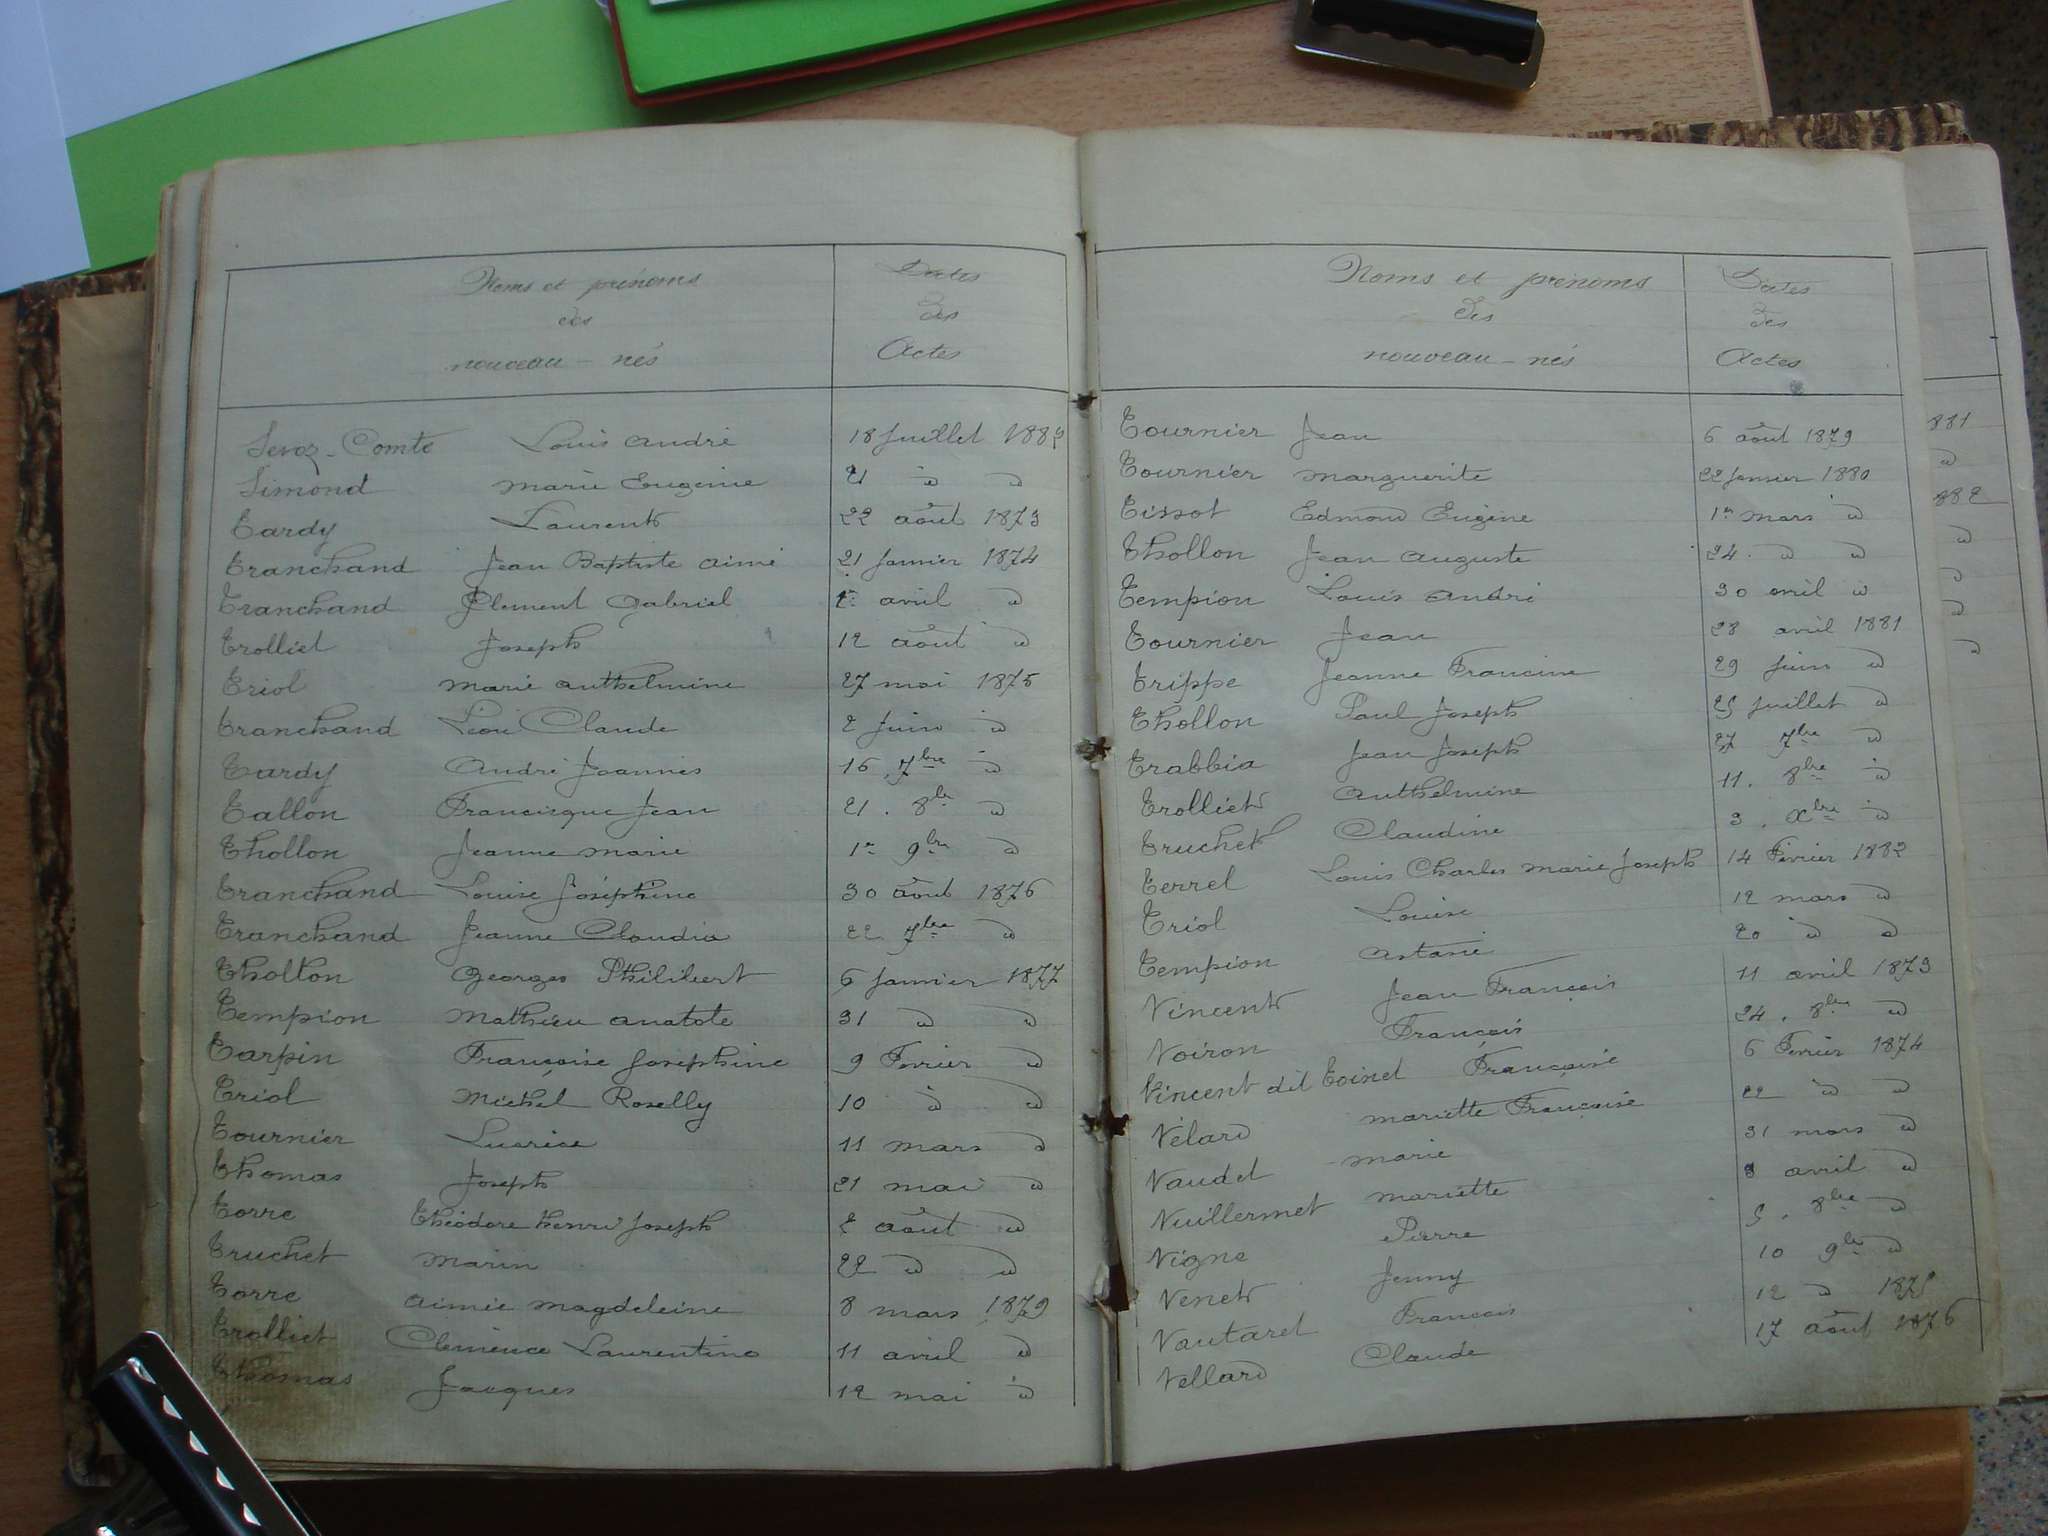 Noms et prénoms
des
nouveau-nés
Dates
des
Actes
Sevoz-Comte Louis André 18 Juillet 1882
Simond Marie Eugénie 21 d d
Tardy Laurent 22 août 1873
Tranchand Jean Baptiste Aimé 21 Janvier 1874
Tranchand Clément Gabriel avril d
Trolliet Joseph 12 août d
Triol Marie Anthelmine 27 mai 1875
Tranchand Léon Claude 2 Juin d
Tardy André Joannès 16. 7bre d
Tallon Francisque Jean 21. 8bre d
Thollon Jeanne Marie 1er 9bre d
Tranchand Louise Joséphine 30 août 1876
Tranchand Jeanne Claudia 22 7bre d
Thollon Georges Philibert 6 Janvier 1877
Tempion Mathieu Anatole 31 d d
Tarpin Françoise Joséphine 9 Fevrier d
Triol Michel Roselly 10 d d
Tournier Lucrèce 11 mars d
Thomas Joseph 21 mai d
Torre Théodore Henri Joseph 2 août d
Truchet Marin 22 d d
Torre Aimée Magdeleine 8 mars 1879
Trolliet Clémence Laurentine 11 avril d
Thomas Jacques 12 mai d
Noms et prénoms
des
nouveau-nés
Dates
des
Actes
Tournier Jean 6 août 1879
Tournier Marguerite 22 Janvier 1880
Tissot Edmond Eugène 1er mars d
Thollon Jean Auguste 24. d d
Tempion Louis André 30 avril d
Tournier Jean 28 avril 1881
Trippe Jeanne Francine 29 Juin d
Thollon Paul Joseph 25 Juillet d
Trabbia Jean Joseph 27 7bre d
Trolliet Anthelmine 11. 8bre d
Truchet Claudine 3. Xbre d
Terrel Louis Charles Marie Joseph 14 Février 1882
Triol Louise 12 mars d
Tempion 20 d d
Vincent Jean François 11 avril 1873
Voiron François 24. 8bre d
Vincent dit Toinet Françoise 6 Fevrier 1874
Vélard Mariette Françoise 22 d d
Vaudet Marie 31 mars d
Vuillermet Mariette avril d
Vigne Pierre 5. 8bre d
Venet Jenny 10 9bre d
Vautaret François 12 d 1875
Vellard Claude 17 août 1876
881
d
882
d
d
d
d